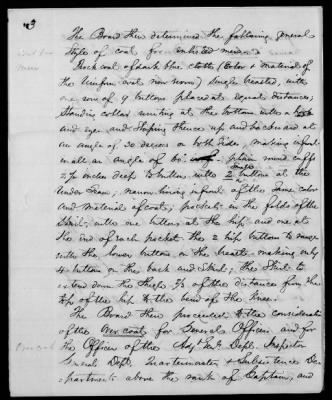 3
The Board then determined the following general
style of coat for enlisted men
Frock coat of dark blue cloth (Color & material of
the Uniform coat now worn) single breasted, with
one row of 9 buttons placed at equal distances;
Standing collar, uniting at the bottom with a hook
and eye and sloping thence up and backward at
an angle of 30 degrees on both sides, making in front
in all an angle of 60°. plain round cuffs
2½ inches deep to button with 2 small buttons at the
under seam; narrow lining in front of the same color
and material of coat; pockets in the folds of the
skirt; with one button at the hip and one at
the end of each pocket. the 2 hip buttons to range
with the lower buttons on the breast; making only
4 buttons on the back and skirt; the skirt to
extend down the thigh ⅔ of the distance from the
top of the hip to the bend of the knee.
The Board then proceeded to the consideration
of the Over coat for General Officers and for
the Officers of the Adjt. Genl's Dept. Inspector
Generals Dept. Quartermaster's & Subsistence De-
partments above the rank of Captain, and